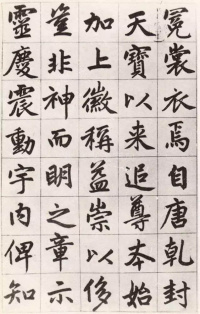 冕裳衣焉自唐乾封
天寶以来追尊本始
加上徽稱益崇以侈
豈非神而明之章示
靈慶震動宇内俾知